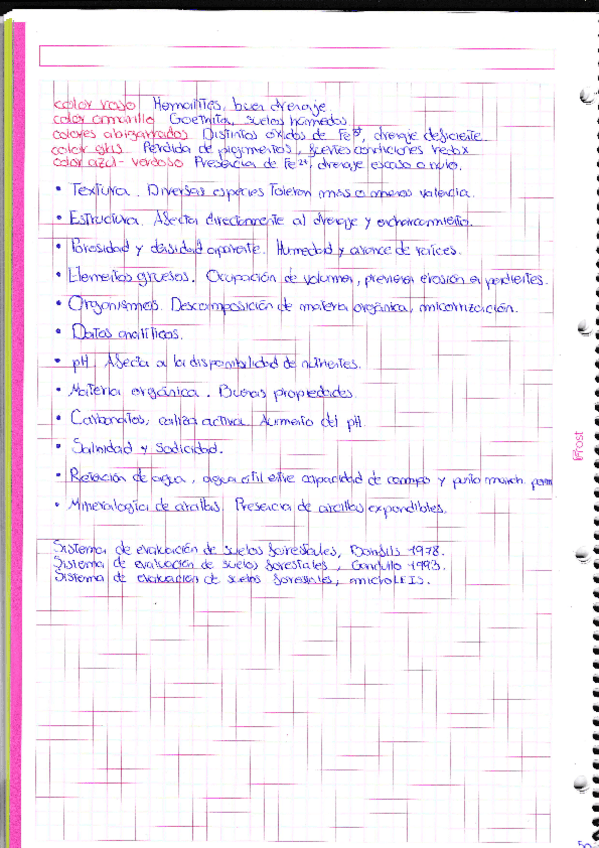 color rojo Hematites, buen drenaje
color amarillo Goetita, suelos húmedos
colores abigarrados Distintos óxidos de Fe³⁺, drenaje deficiente
color gris Pérdida de pigmentos, fuertes condiciones redox
color azul-verdoso Presencia de Fe²⁺, drenaje escaso o nulo.
• Textura. Diversas especies toleran más o menos valencia.
• Estructura. Afecta directamente al drenaje y encharcamiento.
• Porosidad y densidad aparente. Humedad y avance de raíces.
• Elementos gruesos. Ocupación de volumen, previenen erosión en pendientes.
• Organismos. Descomposición de materia orgánica, micorrización.
• Datos analíticos.
• pH. Afecta a la disponibilidad de nutrientes.
• Materia orgánica. Buenas propiedades.
• Carbonatos, caliza activa. Aumento del pH
• Salinidad y Sodicidad.
• Retención de agua, agua útil entre capacidad de campo y punto march. perm
• Mineralogía de arcillas. Presencia de arcillas expandibles.
Sistema de evaluación de suelos forestales, Bonfils 1978.
Sistema de evaluación de suelos forestales, Gandullo 1993.
Sistema de evaluación de suelos forestales, microLEIS.
Frost